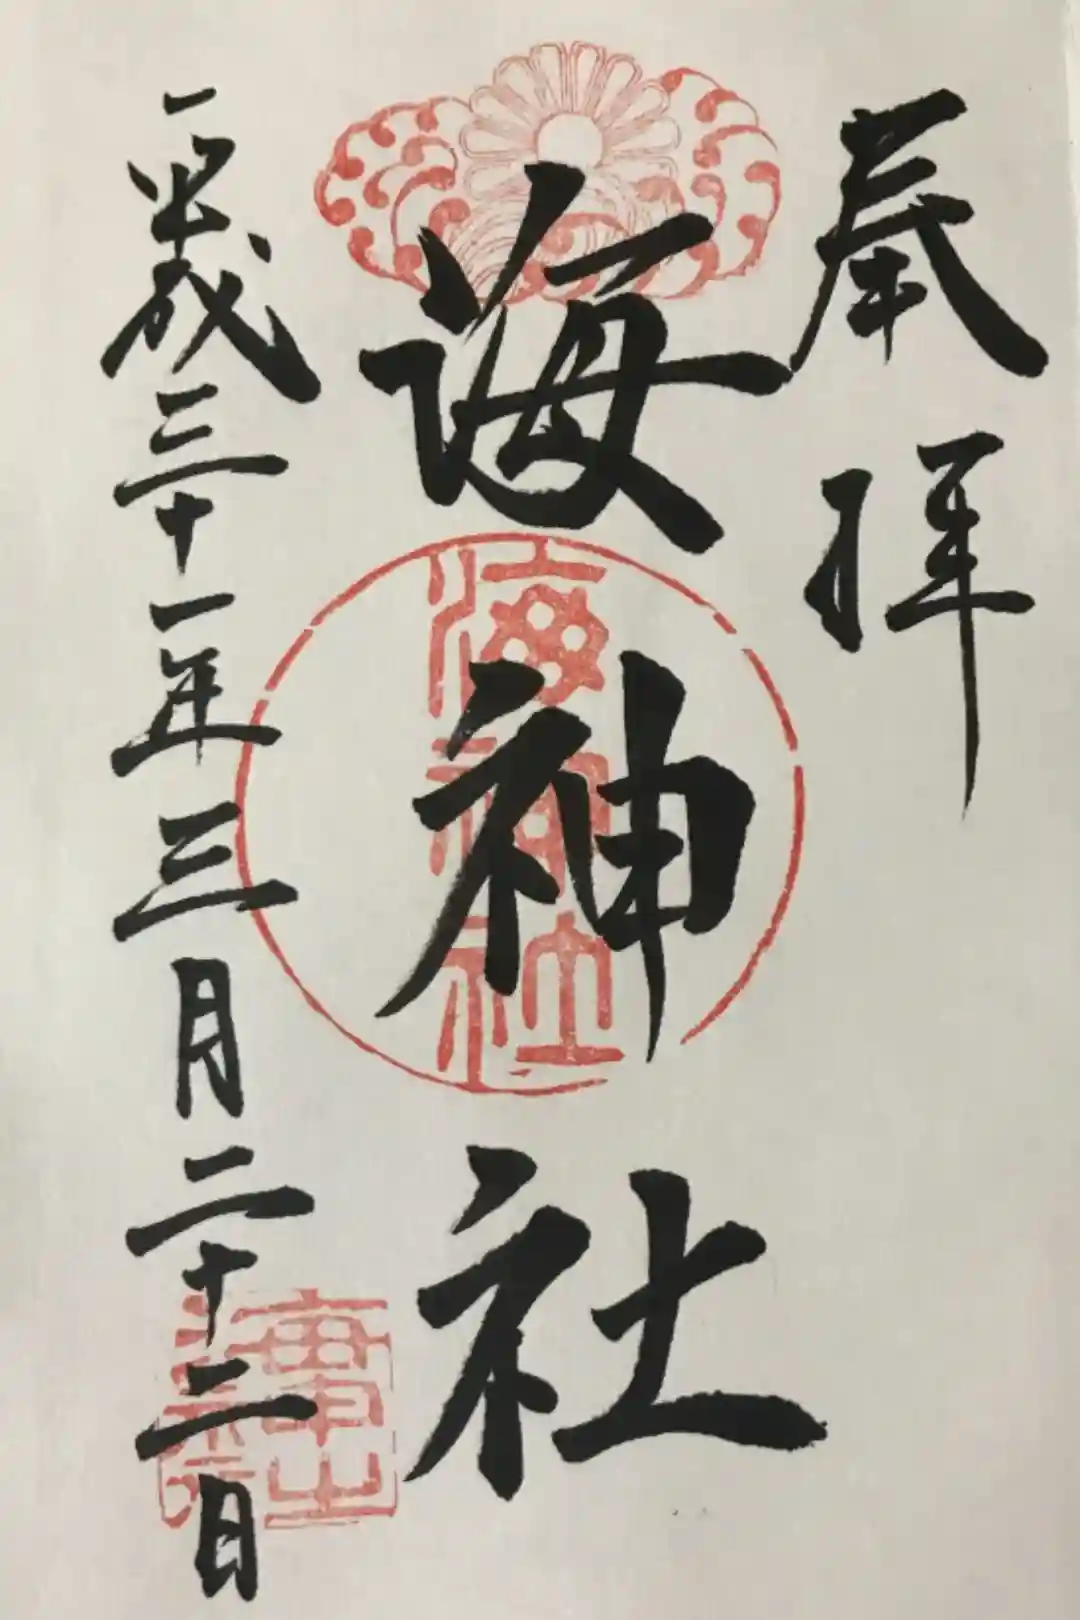 奉拝
海神社
海神社
平成三十一年三月二十二日